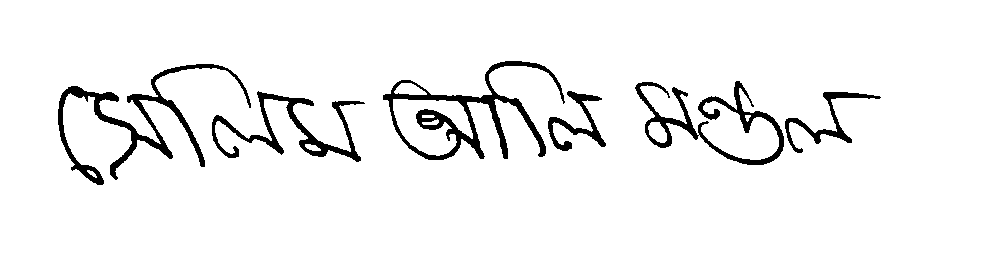 সেলিম আলি মণ্ডল